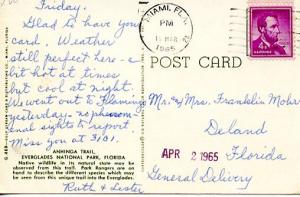 Friday.
Glad to have your
card. Weather
still perfect here - a
bit hot at times
but cool at night.
We went out to Flamingo
yesterday - no phenom-
enal sights to report.
Miss you at 301.
Ruth & Lester
ANHINGA TRAIL,
EVERGLADES NATIONAL PARK, FLORIDA
Native wildlife in its natural state may be
observed from this trail. Park Rangers are
on hand to describe the different species which may
be seen from this unique trail into the Everglades.
MIAMI, FLA.
PM
MAR
1965
4¢
POST CARD
Mr. & Mrs. Franklin Mohr
Deland
Florida
General Delivery
APR 2 1965